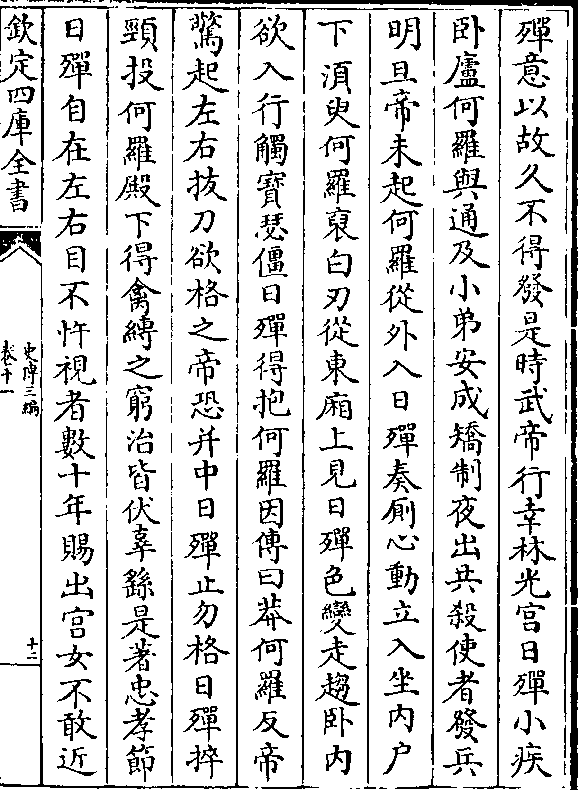 殫意以故久不得發是時武帝行幸林光宫日殫小疾
卧廬何羅與通及小弟安成矯制夜出共殺使者發兵
明旦帝未起何羅從外入日殫奏厠心動立入坐内户
下湏臾何羅裒白刃從東廂上見日殫色變走趨卧内
欲入行觸寳瑟僵日殫得抱何羅因傳曰莽何羅反帝
驚起左右抜刀欲格之帝恐并中日殫止勿格日殫捽
頸投何羅殿下得禽縛之窮治皆伏辜繇是著忠孝節
日殫自在左右目不忤視者數十年賜出宫女不敢近
欽定四庫全書
史傳三編
卷十一
十二